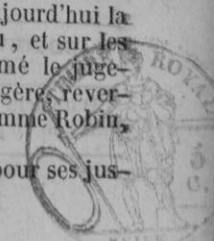 jourd'hui la
, et sur les
mé le juge-
gère, rever-
emme Robin,
pour ses jus-
ROYAL
5
C.